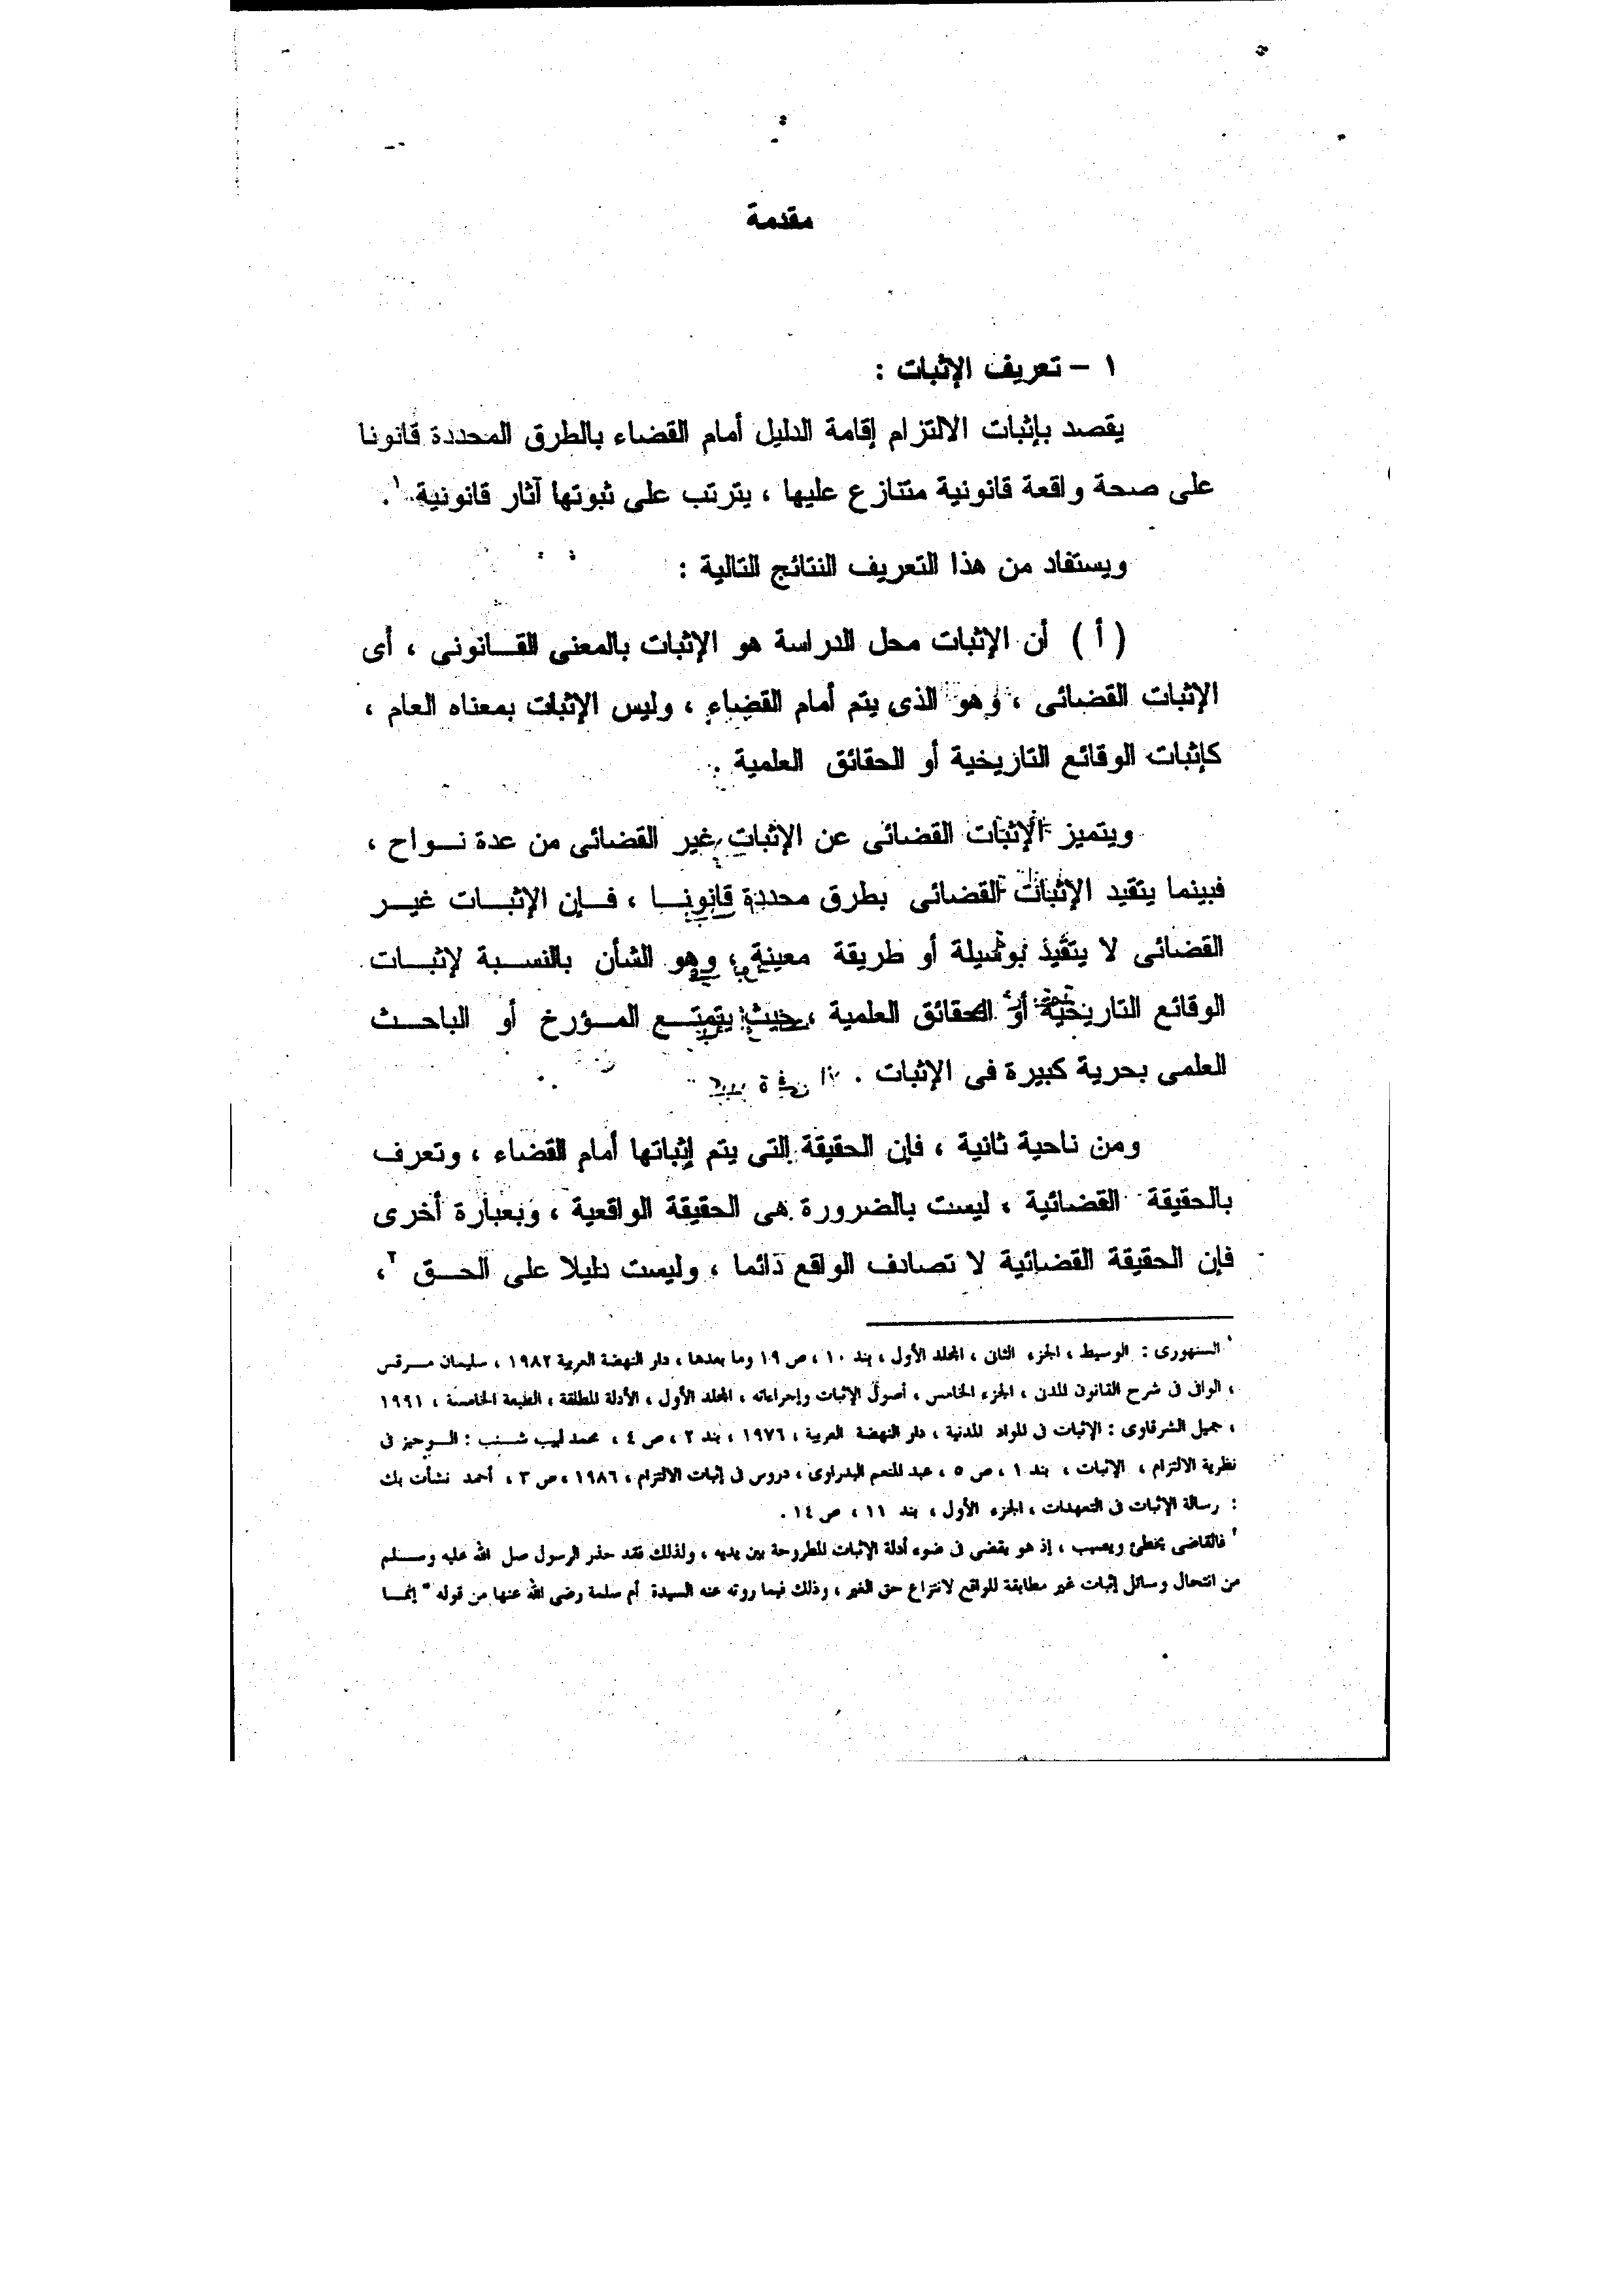 مقدمة
١ – تعريف الإثبات :
يقصد بإثبات الالتزام إقامة الدليل أمام القضاء بالطرق المحددة قانونا
على صحة واقعة قانونية متنازع عليها ، يترتب على ثبوتها آثار قانونية ١.
ويستفاد من هذا التعريف النتائج التالية :
( أ ) أن الإثبات محل الدراسة هو الإثبات بالمعنى القــانونى ، أى
الإثبات القضائى ، وهو الذى يتم أمام القضاء ، وليس الإثبات بمعناه العام ،
كإثبات الوقائع التاريخية أو الحقائق العلمية .
ويتميز الإثبات القضائى عن الإثبات غير القضائى من عدة نــواح ،
فبينما يتقيد الإثبات القضائى بطرق محددة قانونــا ، فــإن الإثبــات غيــر
القضائى لا يتقيد بوسيلة أو طريقة معينة ، وهو الشأن بالنســبة لإثبــات
الوقائع التاريخية أو الحقائق العلمية ، حيث يتمتــع المــؤرخ أو الباحــث
العلمى بحرية كبيرة فى الإثبات .
ومن ناحية ثانية ، فإن الحقيقة التى يتم إثباتها أمام القضاء ، وتعرف
بالحقيقة القضائية ، ليست بالضرورة هى الحقيقة الواقعية ، وبعبارة أخرى
فإن الحقيقة القضائية لا تصادف الواقع دائما ، وليست دليلا على الحــق ٢ ،
١ السنهورى : الوسيط ، الجزء الثانى ، المجلد الأول ، بند ١٠ ، ص ١٩ وما بعدها ، دار النهضة العربية ١٩٨٢ ، سليمان مــرقس
، الوافى فى شرح القانون المدنى ، الجزء الخامس ، أصول الإثبات وإجراءاته ، المجلد الأول ، الأدلة المطلقة ، الطبعة الخامسة ، ١٩٩١
، جميل الشرقاوى : الإثبات فى المواد المدنية ، دار النهضة العربية ، ١٩٧٦ ، بند ٢ ، ص ٤ ، محمد لبيب شــنب : الــوجيز فى
نظرية الالتزام ، الإثبات ، بند ١ ، ص ٥ ، عبد المنعم البدراوى ، دروس فى إثبات الالتزام ، ١٩٨٦ ، ص ٣ ، أحمد نشأت بك
: رسالة الإثبات فى التعهدات ، الجزء الأول ، بند ١١ ، ص ١٤ .
٢ فالقاضى يخطئ ويصيب ، إذ هو يقضى فى ضوء أدلة الإثبات المطروحة بين يديه ، ولذلك فقد حذر الرسول صلى الله عليه وســلم
من انتحال وسائل إثبات غير مطابقة للواقع لانتزاع حق الغير ، وذلك فيما روته عنه السيدة أم سلمة رضى الله عنها من قوله " إنمــا